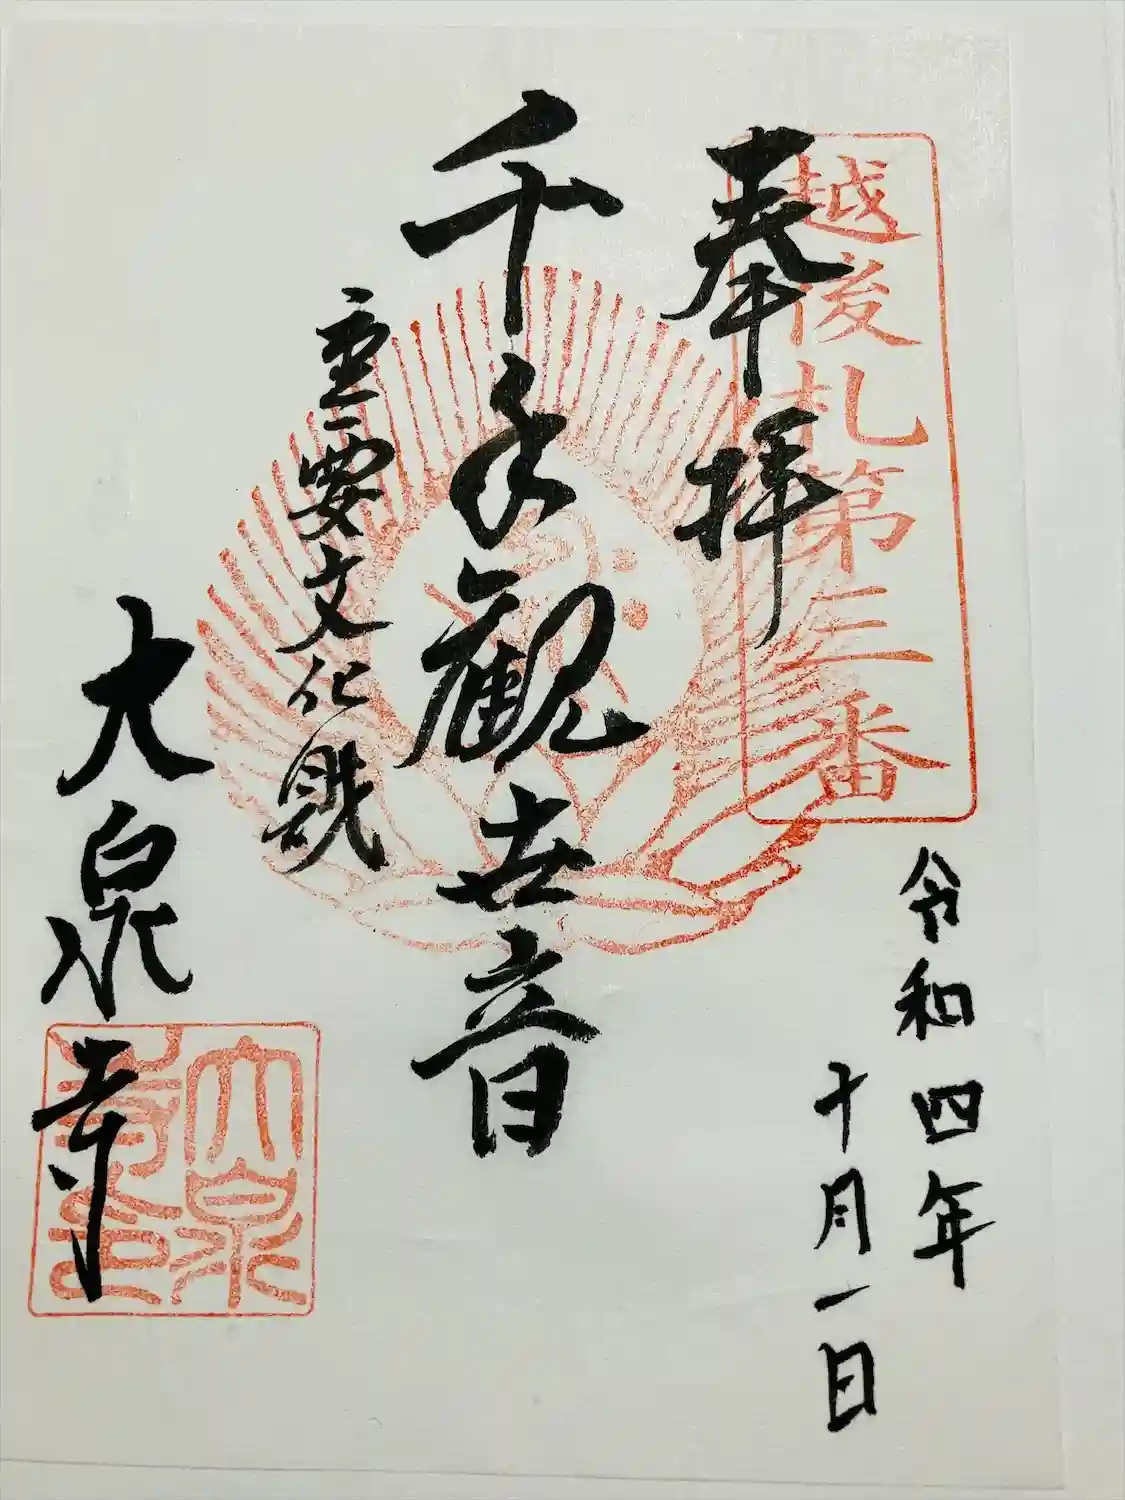 越後札第三番
奉拝
令和四年
十月一日
千手観世音
重要文化財
大泉寺
大泉
寺印